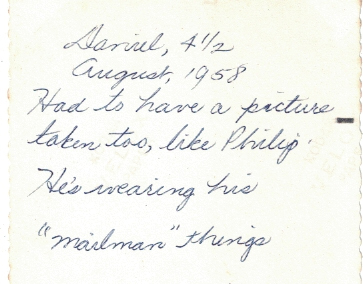 Daniel, 4 1/2
August, 1958
Had to have a picture
taken too, like Philip
He's wearing his
"mailman" things